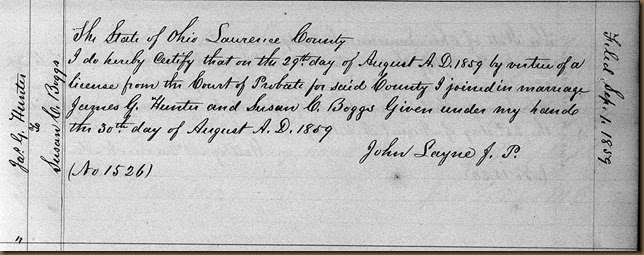 Jas. G. Hunter
to
Susan C. Boggs
The State of Ohio Lawrence County
I do hereby Certify that on the 29th day of August A.D. 1859 by virtue of a
license from the Court of Probate for said County I joined in marriage
James G. Hunter and Susan C. Boggs Given under my hand
this 30th day of August A.D. 1859
John Layne J. P.
(No 1526)
Filed Sep. 1. 1859